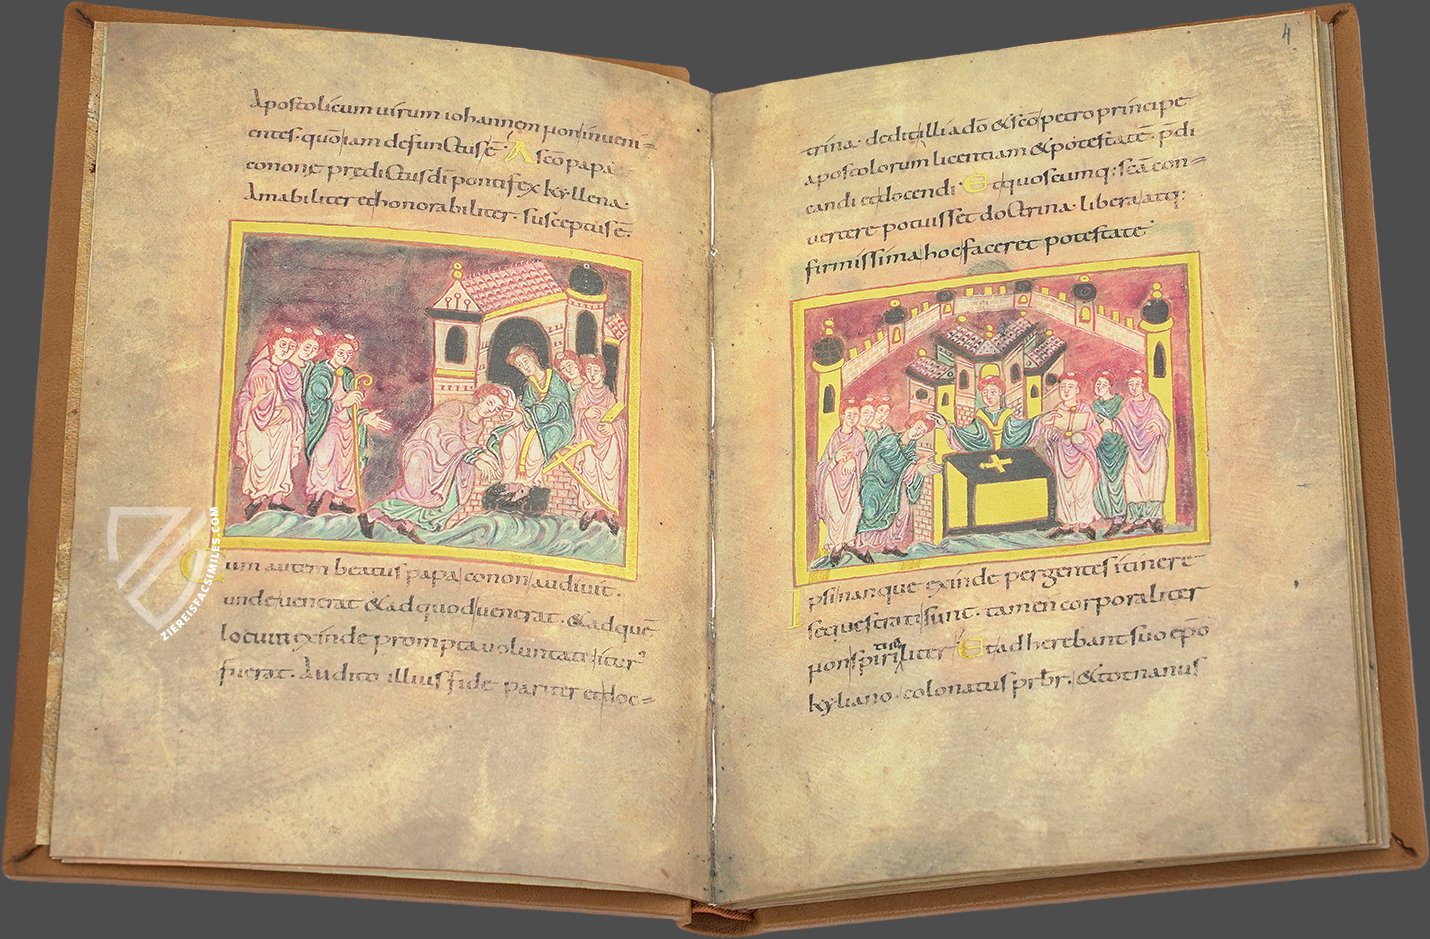 Apostolicum uirum iohannem non inueni-
entes. quōiam defunctus ē. A scō papa
conone predictus di pontifex kyllena.
Amabiliter et honorabiliter. susceptus ē.
Cum autem beatus papa conon audiuit.
unde uenerat & ad quod uenerat. & ad quē
locum exinde prompta uoluntate itur'
fuerat. Audito illius fide pariter et doc-
4
trina. dedit illi a dō & scō petro principe
apostolorum licentiam & potestatē. p̄di
candi et docendi. Et quoscumq; scā con-
uertere potuisset doctrina. libera atq;
firmissima hoc faceret potestate
psi nanque exinde pergentes itinere
sequestrati sunt. tamen corporaliter
non spiritaliter. Et adherebant suo ep̄o
kyliano. colonatus prbr. & totnanus
ZIEREISFACSIMILES.COM